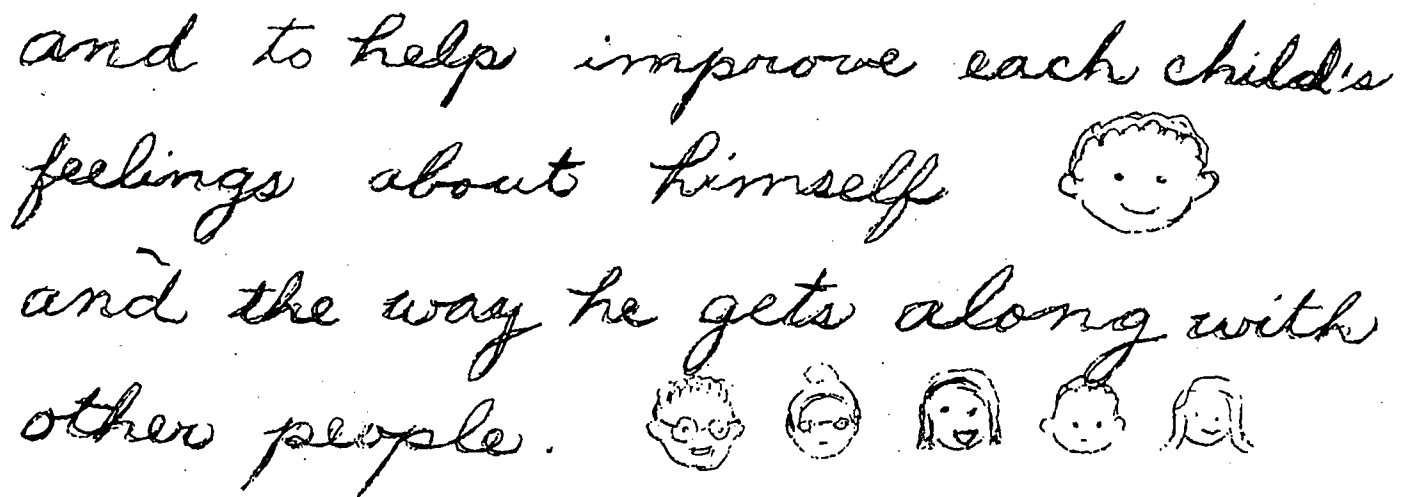 and to help improve each child's
feelings about himself
and the way he gets along with
other people.